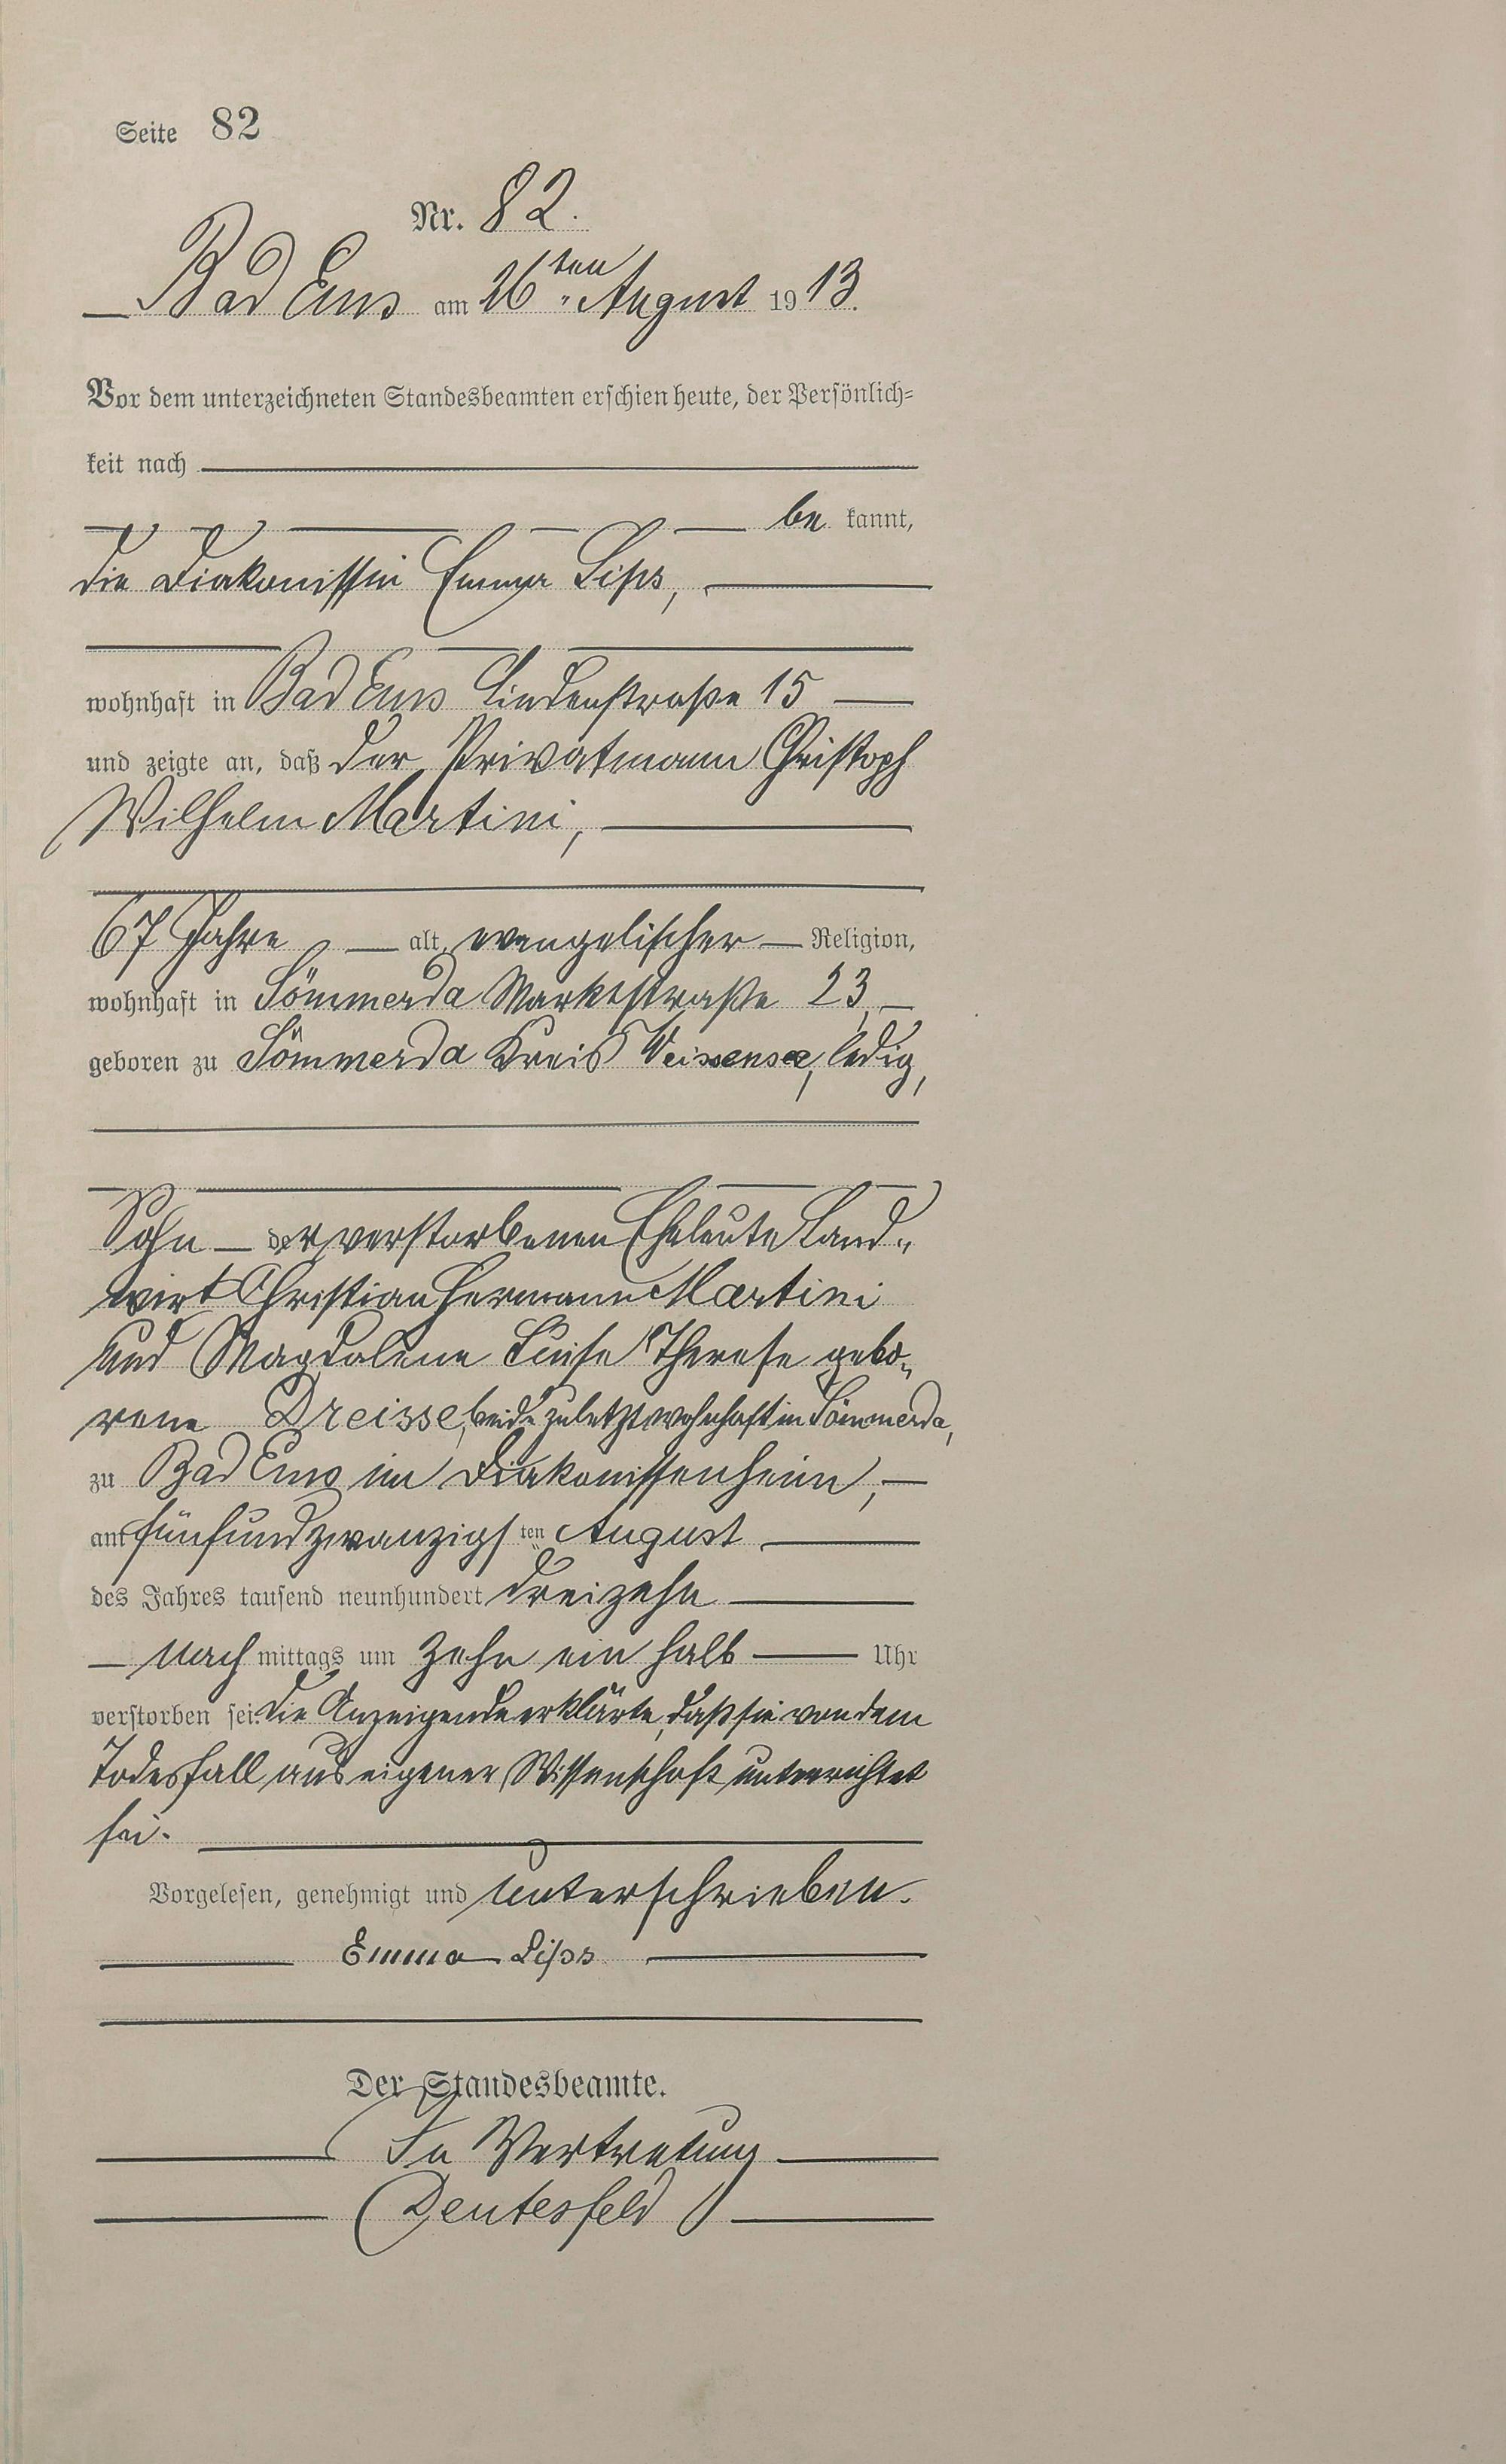 Seite 82
Nr. 82.
Bad Ems am 26ten August 1913.
Vor dem unterzeichneten Standesbeamten erschien heute, der Persönlich=
keit nach
be kannt,
die Diakonissin Emma Lips,
wohnhaft in Bad Ems Lindenstraße 15
und zeigte an, daß der Privatmann Christoph
Wilhelm Martini,
67 Jahre alt, evangelischer Religion,
wohnhaft in Sömmerda Marktstraße 23,
geboren zu Sömmerda Kreis Weissensee, ledig,
Sohn der verstorbenen Eheleute Land„
wirt Christian Hermann Martini
und Magdalene Luise Therese gebo„
rene Dreisse, beide zuletzt wohnhaft in Sömmerda,
zu Bad Ems im Diakonissenheim,
am fünfundzwanzigsten August
des Jahres tausend neunhundert dreizehn
nach mittags um zehn ein halb Uhr
verstorben sei. Die Anzeigende erklärte, daß sie von dem
Todesfall aus eigener Wissenschaft unterrichtet
sei.
Vorgelesen, genehmigt und unterschrieben.
Emma Lips
Der Standesbeamte.
In Vertretung
Deutesfeld